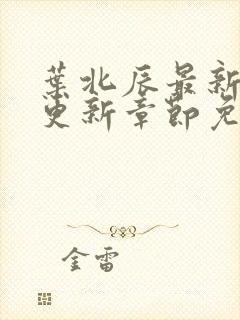 葉北辰最新
更新章節免
金雷